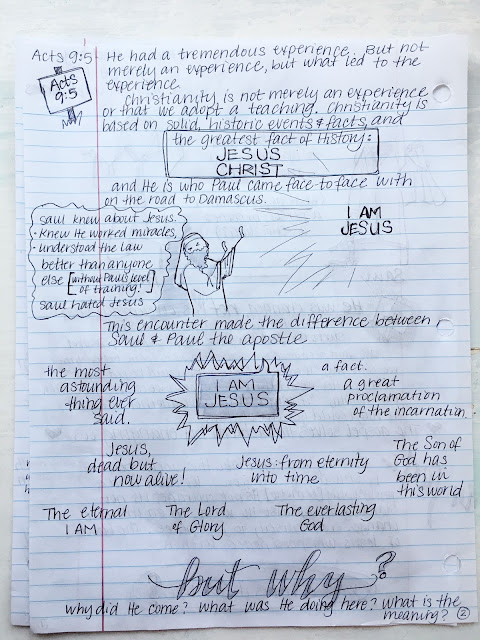 Acts 9:5
He had a tremendous experience. But not
merely an experience, but what led to the
experience.
Acts
9:5
Christianity is not merely an experience
or that we adopt a teaching. Christianity is
based on solid, historic events & facts, and
the greatest fact of History:
JESUS
CHRIST
and He is who Paul came face-to-face with
on the road to Damascus.
saul knew about Jesus.
• knew He worked miracles,
• understood the law
better than anyone
else [without Paul's level
of training!]
saul hated Jesus
I AM
JESUS
This encounter made the difference between
Saul & Paul the apostle
the most
astounding
thing ever
said.
I AM
JESUS
a fact.
a great
proclamation
of the incarnation.
Jesus,
dead but
now alive!
Jesus: from eternity
into time
The Son of
God has
been in
this world
The eternal
I AM
The Lord
of Glory
The everlasting
God
but why?
why did He come? what was He doing here? what is the
meaning? 2